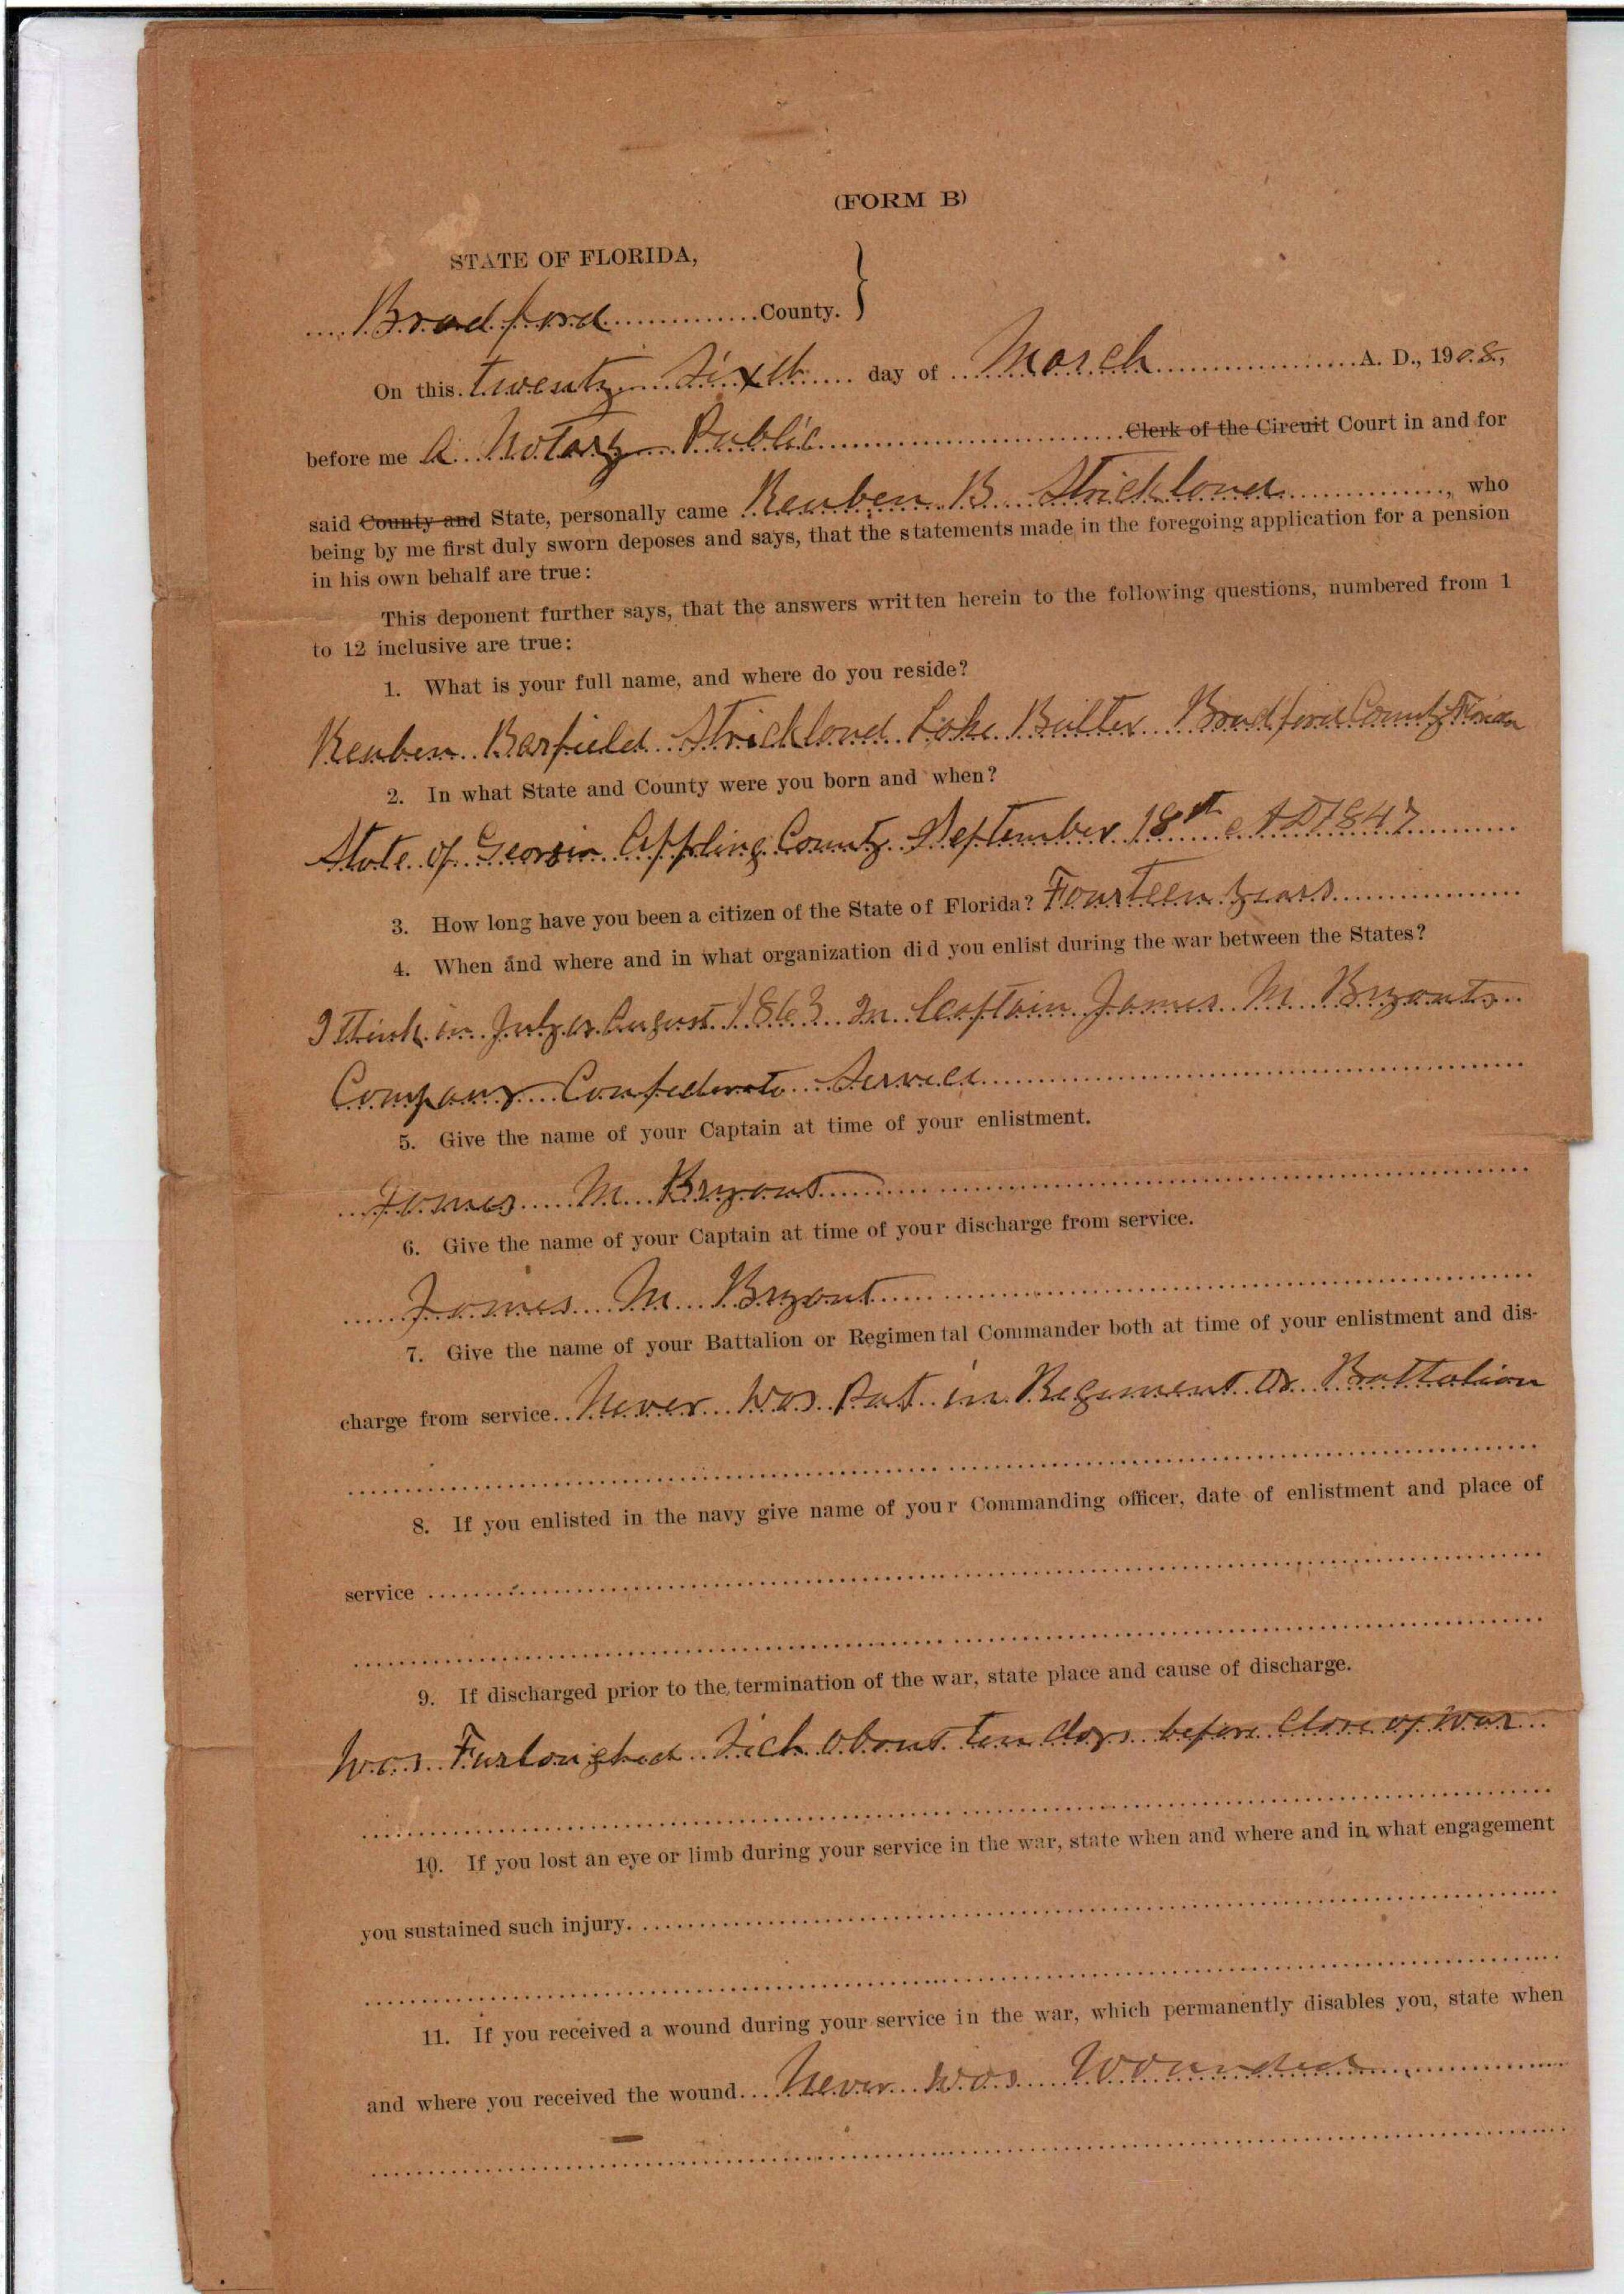 (FORM B)
STATE OF FLORIDA,
Bradford County. }
On this twenty sixth day of March A. D., 1908,
before me A Notary Public Clerk of the Circuit Court in and for
said County and State, personally came Reuben B Strickland, who
being by me first duly sworn deposes and says, that the statements made in the foregoing application for a pension
in his own behalf are true:
This deponent further says, that the answers written herein to the following questions, numbered from 1
to 12 inclusive are true:
1. What is your full name, and where do you reside?
Reuben Barfield Strickland Lake Butler Bradford County Florida
2. In what State and County were you born and when?
State of Georgia Appling County September 18th AD 1847
3. How long have you been a citizen of the State of Florida? Fourteen years
4. When and where and in what organization did you enlist during the war between the States?
I Think in July or August 1863 In Captain James M Bryants
Company Confederate Service
5. Give the name of your Captain at time of your enlistment.
James M Bryant
6. Give the name of your Captain at time of your discharge from service.
James M Bryant
7. Give the name of your Battalion or Regimental Commander both at time of your enlistment and dis-
charge from service. Never Was Put in Regement Or Battalion
8. If you enlisted in the navy give name of your Commanding officer, date of enlistment and place of
service
9. If discharged prior to the termination of the war, state place and cause of discharge.
Was Furloughed Sick about ten days before Close of War
10. If you lost an eye or limb during your service in the war, state when and where and in what engagement
you sustained such injury.
11. If you received a wound during your service in the war, which permanently disables you, state when
and where you received the wound. Never Was Wounded